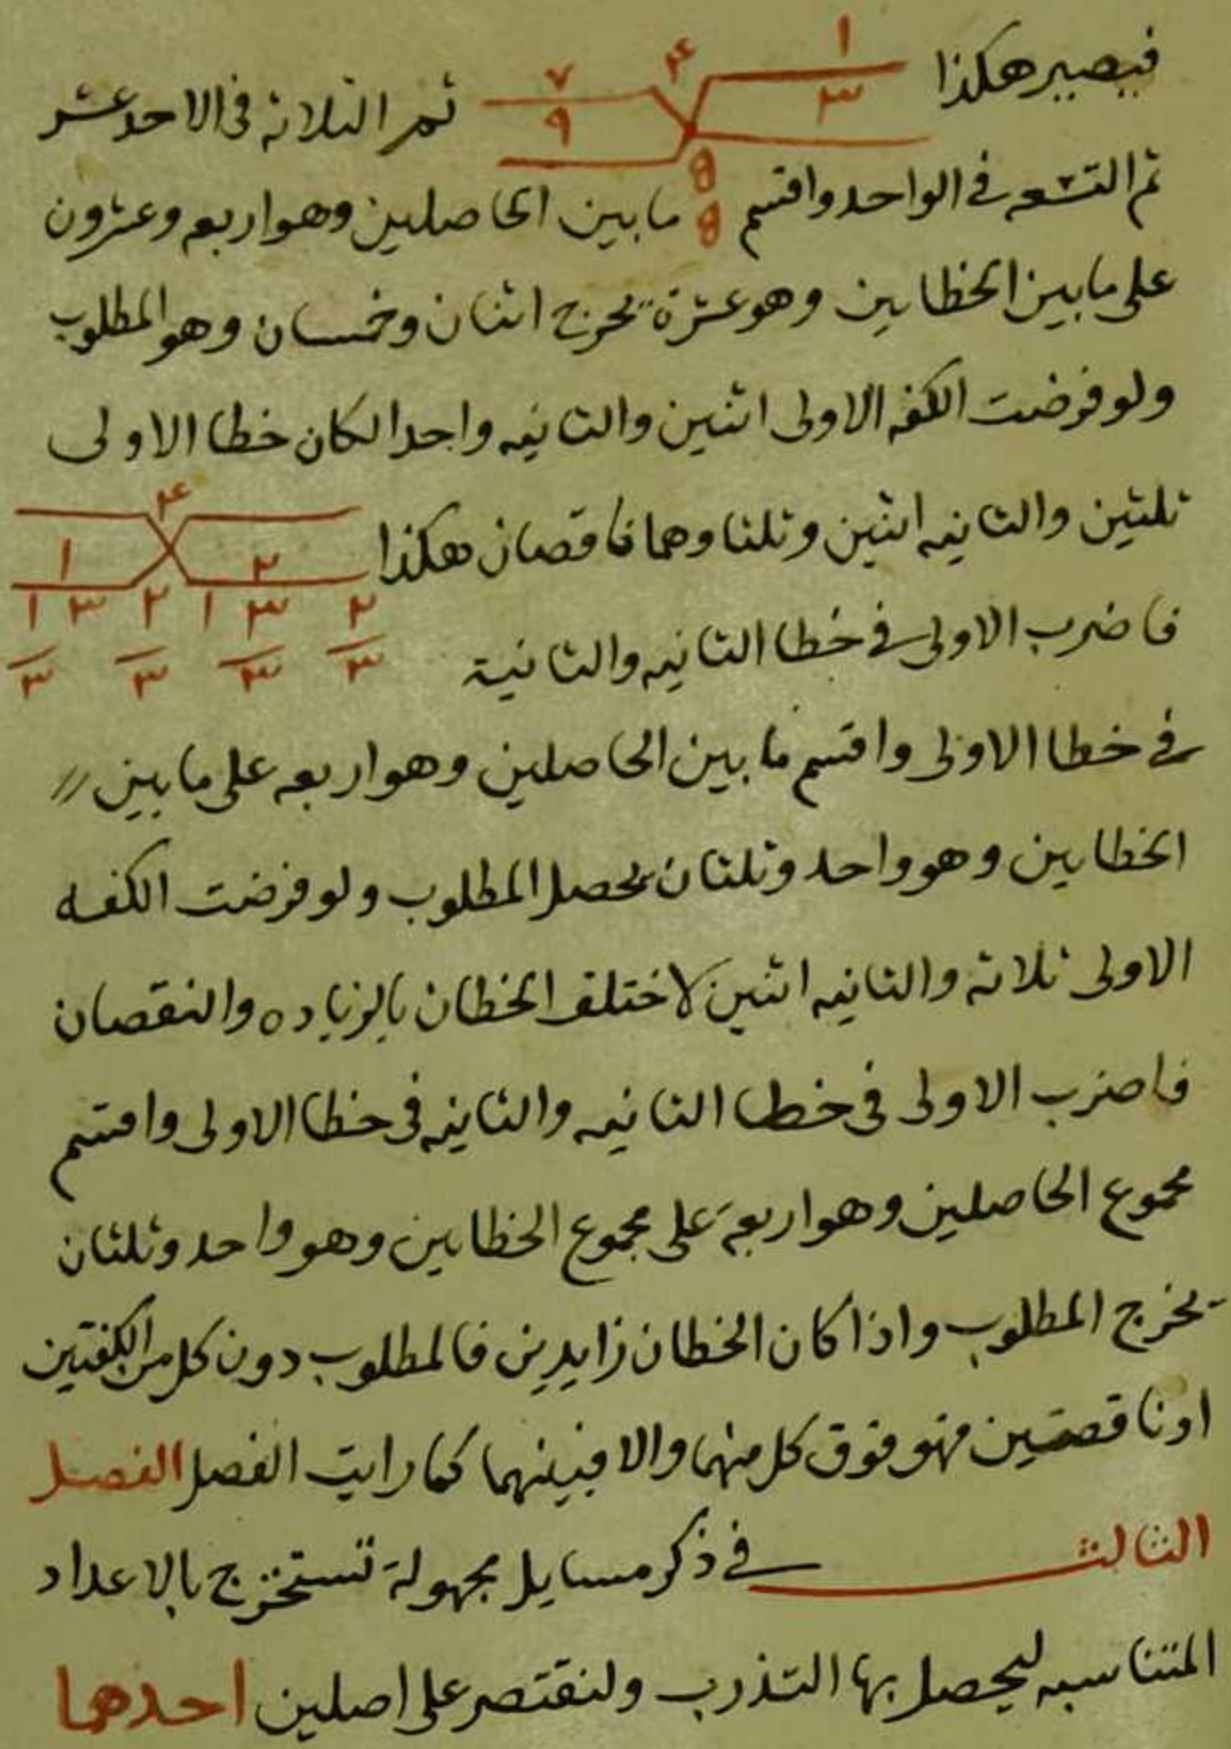 فيصير هكذا ١ ٣ ۴ ٧ ٩ ثم الثلاثة في الاحد عشر
ثم التسعه في الواحد واقسم ما بين الحاصلين وهو اربعه وعشرون
على ما بين الخطاين وهو عشرة يخرج اثنان وخمسان وهو المطلوب
ولو فرضت الكفه الاولى اثنين والثانيه واحدا لكان خطا الاولى
ثلثين والثانيه اثنين وثلثا وهما ناقصان هكذا ۴ ٢ ١
٢ ٣ ١ ٢ ٣ ١
فاضرب الاولى في خطا الثانيه والثانية ٣ ٣ ٣ ٣
في خطا الاولى واقسم ما بين الحاصلين وهو اربعه على ما بين
الخطاين وهو واحد وثلثان يحصل المطلوب ولو فرضت الكفه
الاولى ثلاثه والثانيه اثنين لاختلف الخطان بالزياده والنقصان
فاضرب الاولى في خطا الثانيه والثانيه في خطا الاولى واقسم
مجموع الحاصلين وهو اربعة على مجموع الخطاين وهو واحد وثلثان
يخرج المطلوب واذا كان الخطان زايدين فالمطلوب دون كل من الكفتين
او ناقصين فهو فوق كل منهما والا فبينهما كما رايت الفصل الفصل
الثالث في ذكر مسايل مجهولة تستخرج بالاعداد
المتناسبه ليحصل بها التدرب ولنقتصر على اصلين احدهما